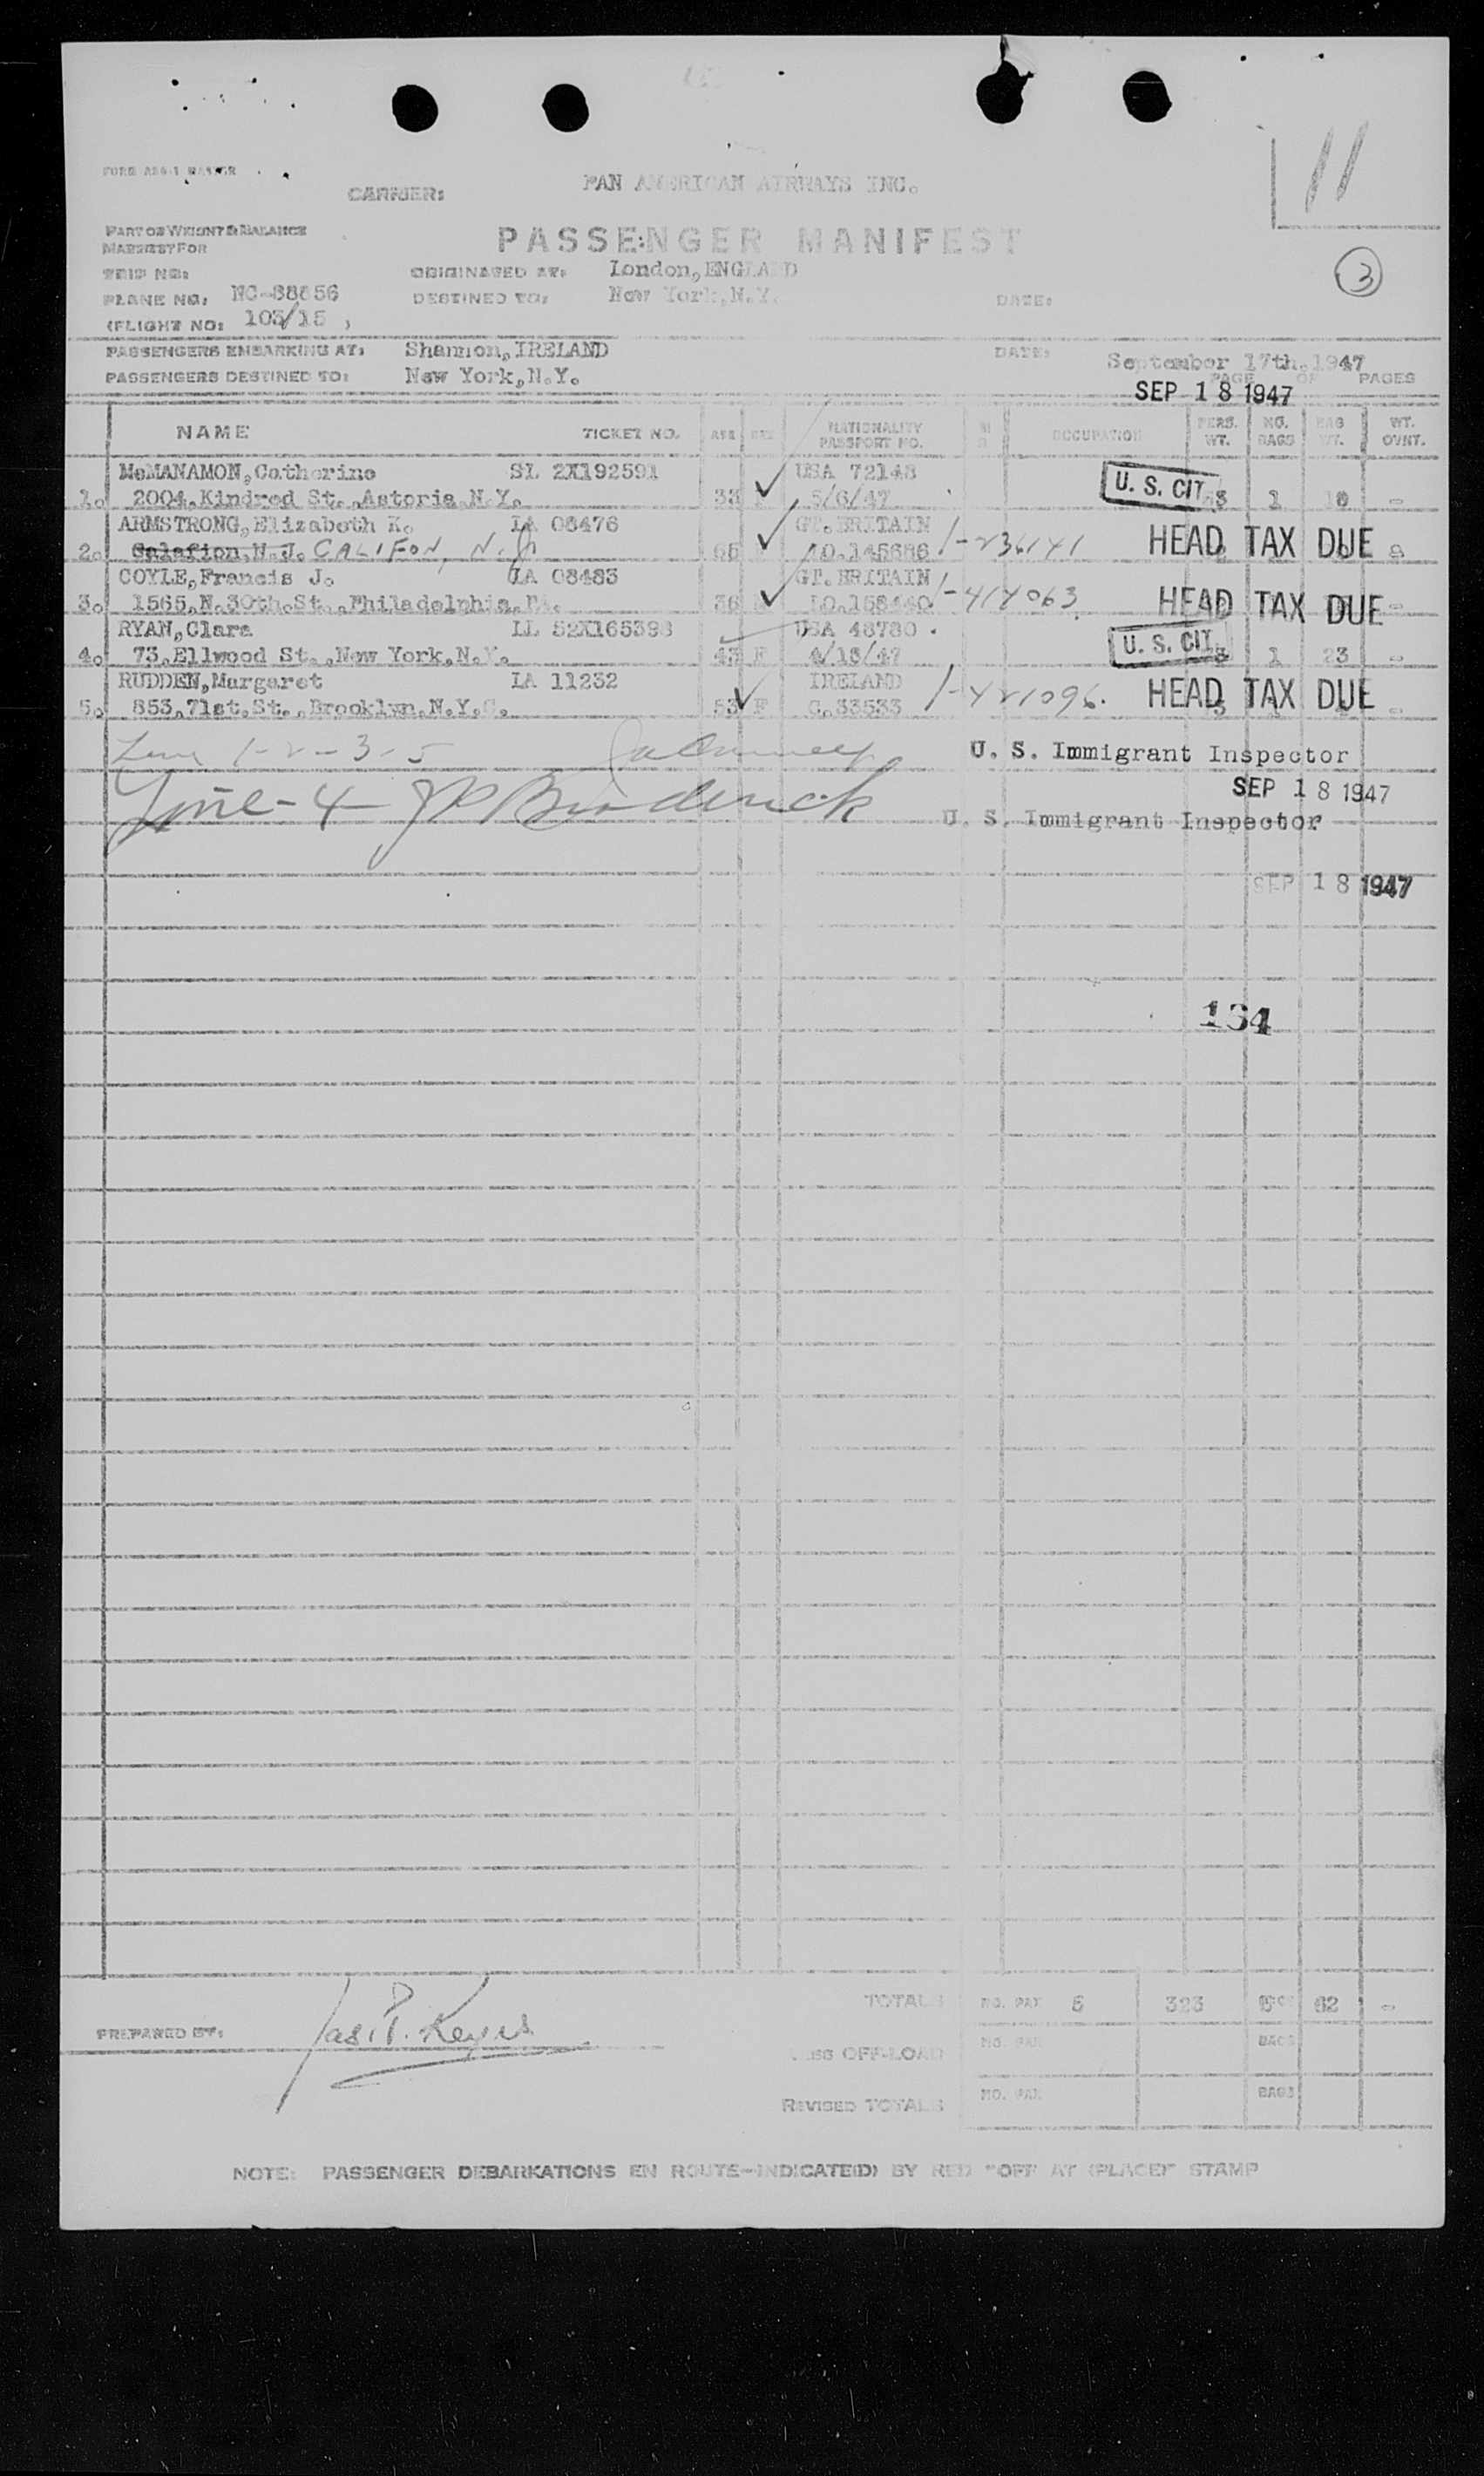 11
CARRIER: PAN AMERICAN AIRWAYS INC.
PART OF WEIGHT & BALANCE
MANIFEST FOR
PASSENGER MANIFEST
3
TRIP NO: ORIGINATED AT: London,ENGLAND
PLANE NO: NC-88856 DESTINED TO: New York,N.Y. DATE:
(FLIGHT NO: 103/15 )
PASSENGERS EMBARKING AT: Shannon,IRELAND DATE: September 17th.1947
PASSENGERS DESTINED TO: New York,N.Y. PAGE OF PAGES
SEP 18 1947
NAME TICKET NO. AGE SEX NATIONALITY PASSPORT NO. OCCUPATION PERS. WT. NO. BAGS BAG WT. WT. OVNT.
McMANAMON,Catherine SL 2X192591 USA 72148
1. 2004.Kindred St.,Astoria,N.Y. 33 5/6/47 U. S. CIT. 1 -
ARMSTRONG,Elizabeth K. LA 08476 GT.BRITAIN
2. Calafion,N.J. CALIFON, N.J. 1-236141 HEAD TAX DUE
COYLE,Francis J. LA 08483 GT.BRITAIN
3. 1565.N.30th.St.,Philadelphia,Pa. 36 1-414063 HEAD TAX DUE
RYAN,Clara LL 52X165398 USA 48780
4. 73.Ellwood St.,New York,N.Y. 43 F 4/18/47 U. S. CIT. 1 23 -
RUDDEN,Margaret LA 11232 IRELAND
5. 853.71st.St.,Brooklyn,N.Y.C. 53 F C.33533 1-421096. HEAD TAX DUE
Line 1-2-3-5 U. S. Immigrant Inspector
SEP 18 1947
Line-4 JP Broderick U. S. Immigrant Inspector
SEP 18 1947
134
TOTALS NO. PAX 5 323 62 -
PREPARED BY: Jas. P. Keyes
NO. PAX BAGS
OFF-LOAD
REVISED TOTALS NO. PAX BAGS
NOTE: PASSENGER DEBARKATIONS EN ROUTE-INDICATE(D) BY RED "OFF AT (PLACE)" STAMP